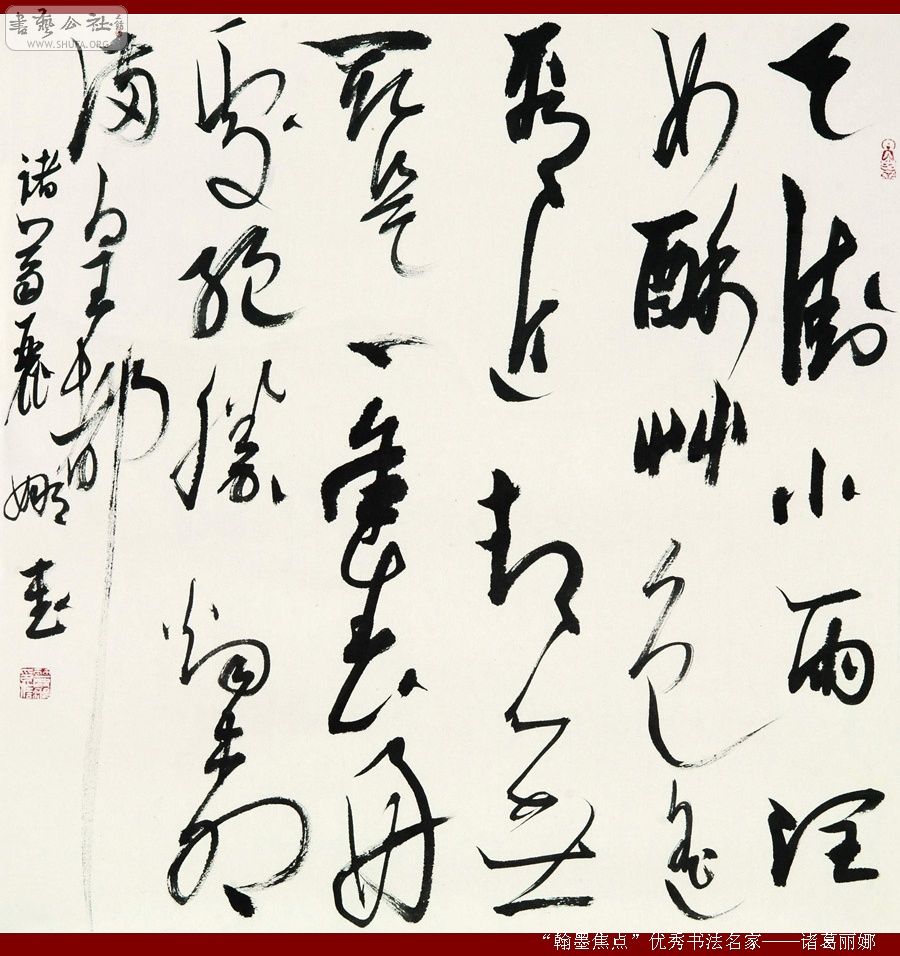 書藝公社
WWW.SHUFA.ORG
天街小雨润
如酥艸色遥
看近却無
最是一年春好
處絕勝烟柳
滿皇都
诸葛麗娜書
“翰墨焦点”优秀书法名家——诸葛丽娜